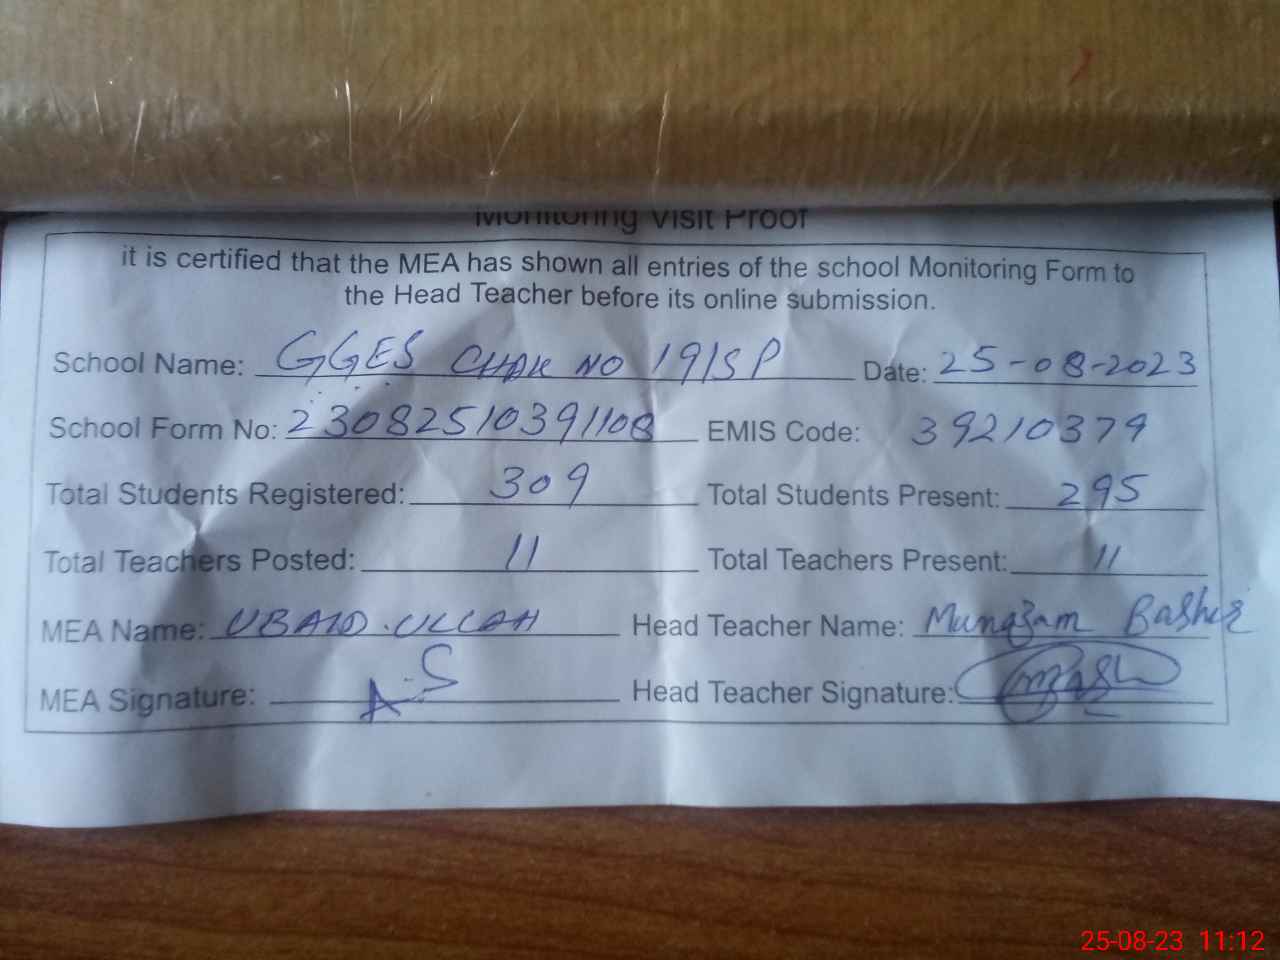 Monitoring Visit Proof
it is certified that the MEA has shown all entries of the school Monitoring Form to
the Head Teacher before its online submission.
School Name: GGES CHAK NO 19/SP Date: 25-08-2023
School Form No: 23082510391108 EMIS Code: 39210379
Total Students Registered: 309 Total Students Present: 295
Total Teachers Posted: 11 Total Teachers Present: 11
MEA Name: UBAID.ULLAH Head Teacher Name: Munazam Bashir
MEA Signature: A.S Head Teacher Signature:
25-08-23 11:12